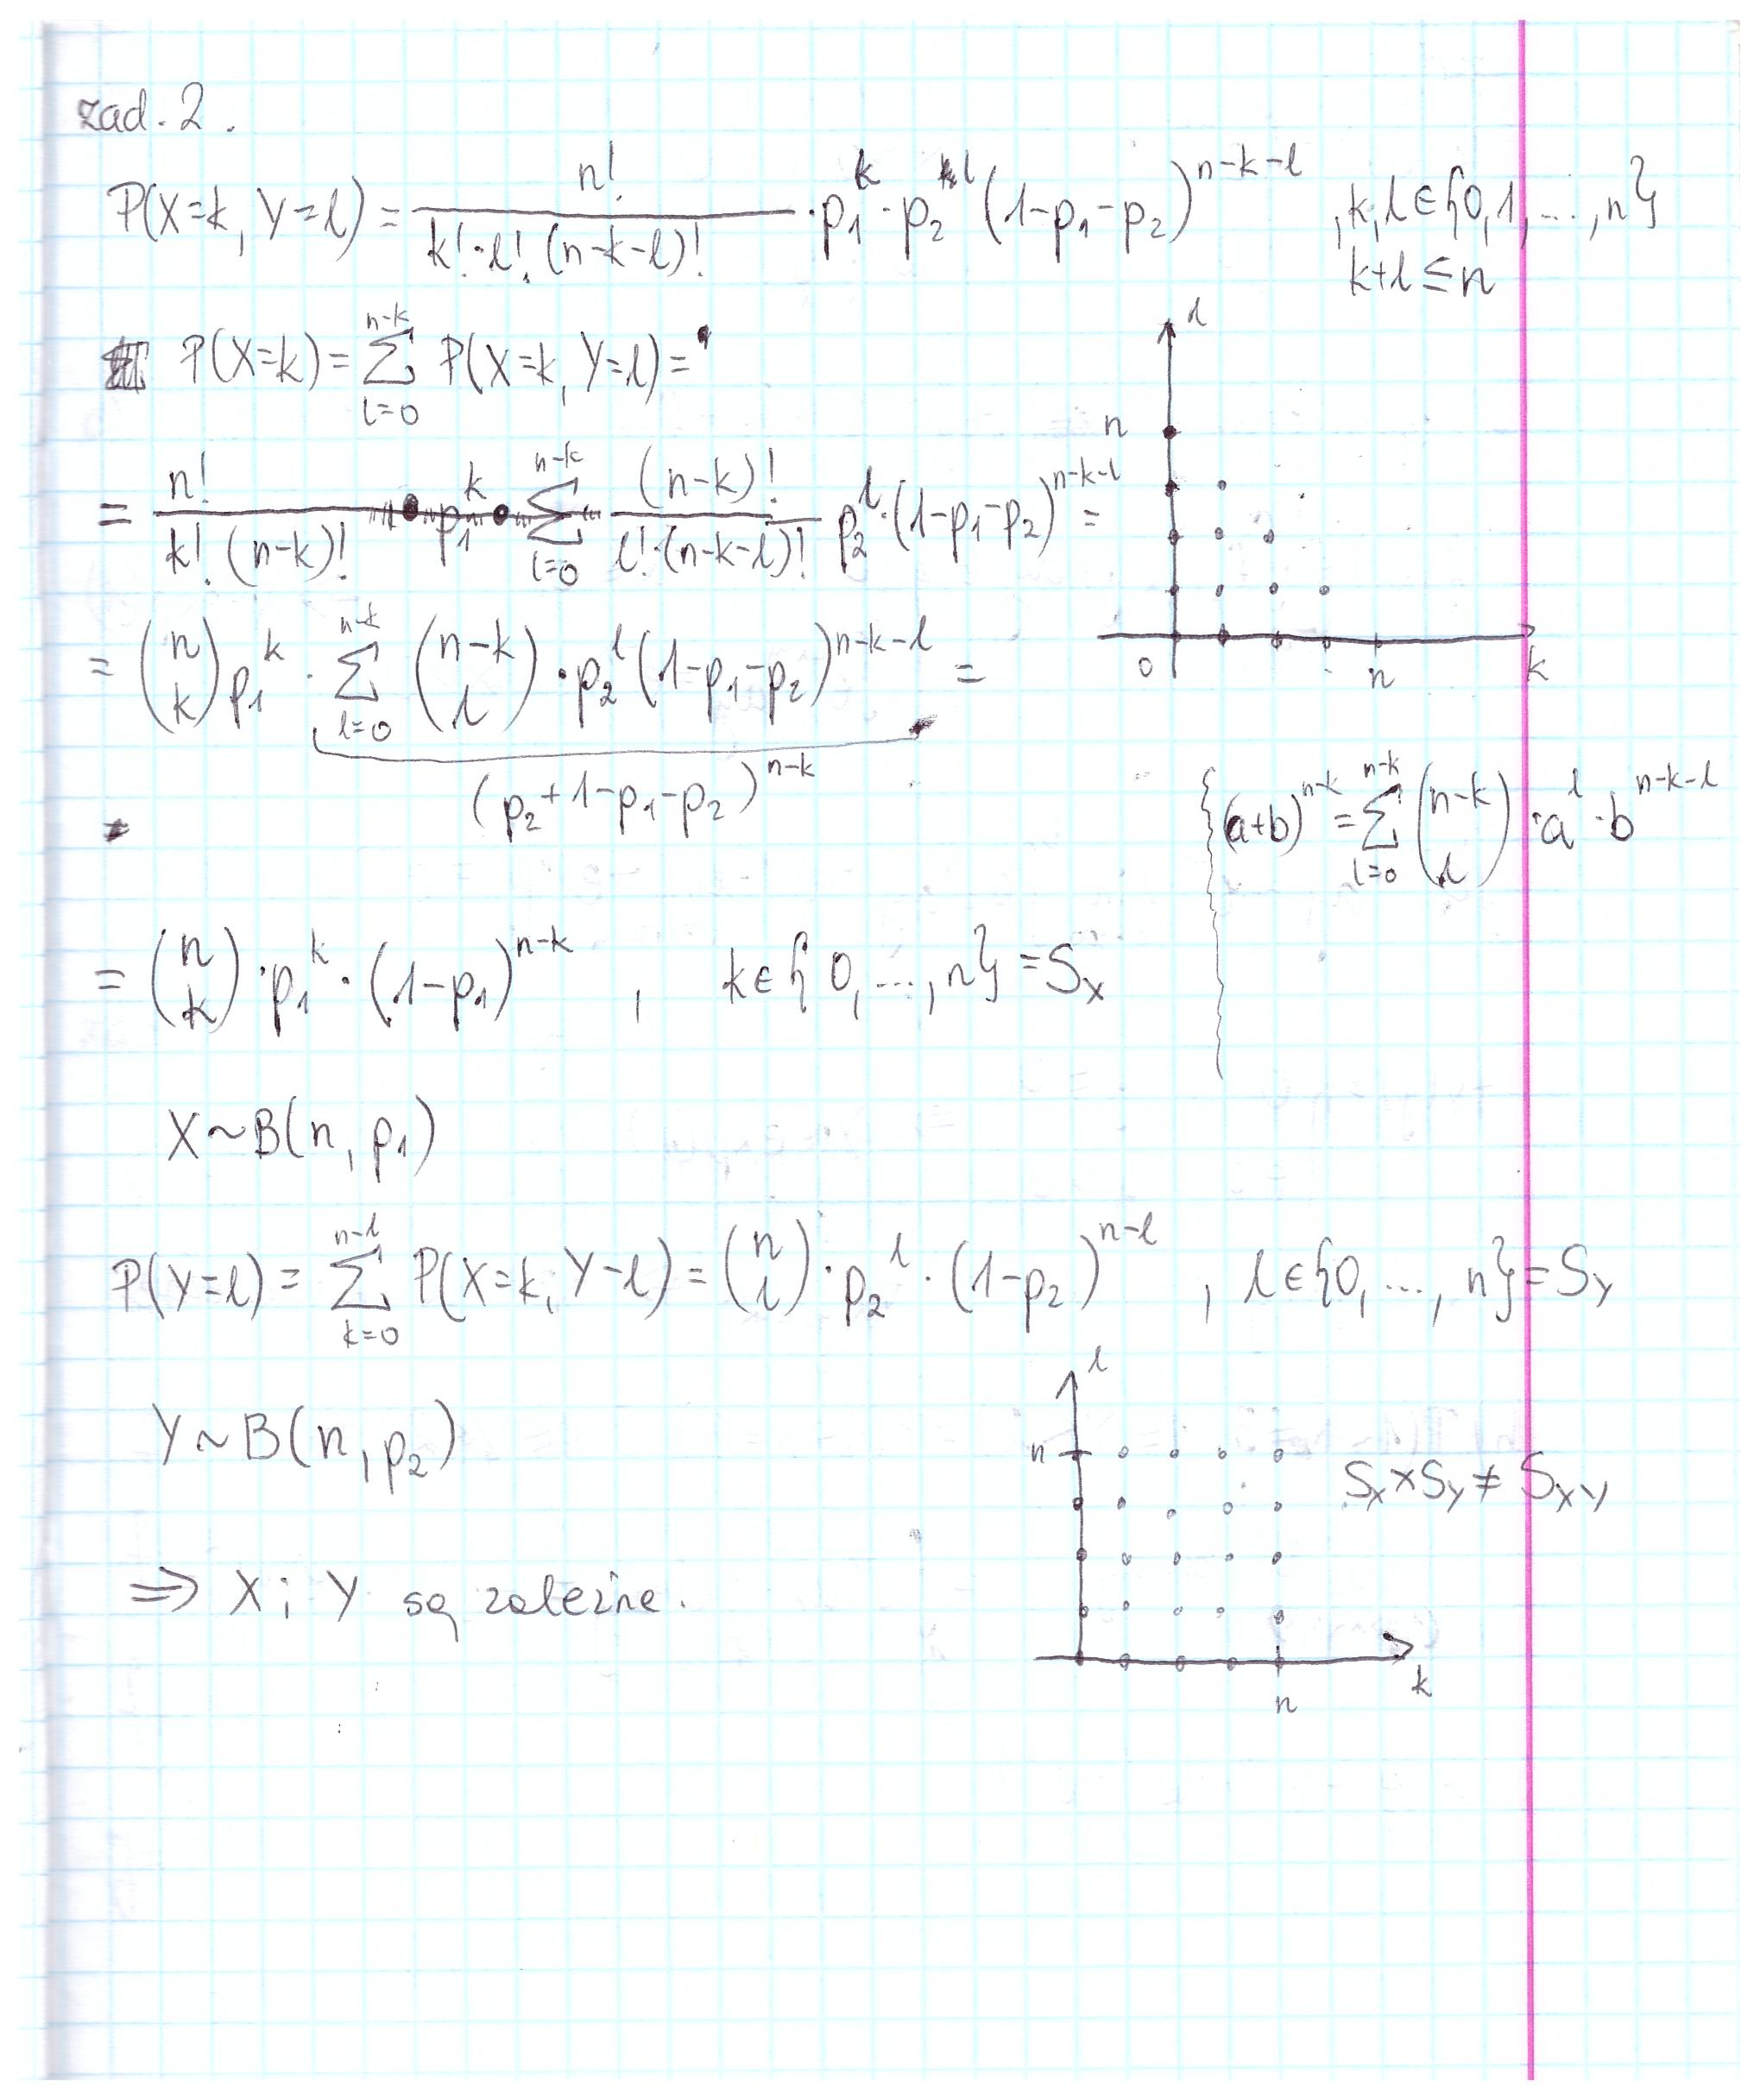 zad. 2.
P(X=k, Y=l) = \frac{n!}{k! \cdot l! \cdot (n-k-l)!} \cdot p_1^k \cdot p_2^l (1-p_1-p_2)^{n-k-l} , k, l ∈ {0, 1, ..., n}
k+l ≤ n
P(X=k) = \sum_{l=0}^{n-k} P(X=k, Y=l) =
= \frac{n!}{k! \cdot (n-k)!} \cdot p_1^k \cdot \sum_{l=0}^{n-k} \frac{(n-k)!}{l! \cdot (n-k-l)!} p_2^l \cdot (1-p_1-p_2)^{n-k-l} =
= \binom{n}{k} p_1^k \cdot \sum_{l=0}^{n-k} \binom{n-k}{l} \cdot p_2^l (1-p_1-p_2)^{n-k-l} =
(p_2+1-p_1-p_2)^{n-k}
l
n
0
n
k
(a+b)^{n-k} = \sum_{l=0}^{n-k} \binom{n-k}{l} \cdot a^l \cdot b^{n-k-l}
= \binom{n}{k} \cdot p_1^k \cdot (1-p_1)^{n-k} , k ∈ {0, ..., n} = S_X
X ~ B(n, p_1)
P(Y=l) = \sum_{k=0}^{n-l} P(X=k, Y-l) = \binom{n}{l} \cdot p_2^l \cdot (1-p_2)^{n-l} , l ∈ {0, ..., n} = S_Y
Y ~ B(n, p_2)
l
n
n
k
S_X × S_Y ≠ S_{XY}
⇒ X i Y są zależne.